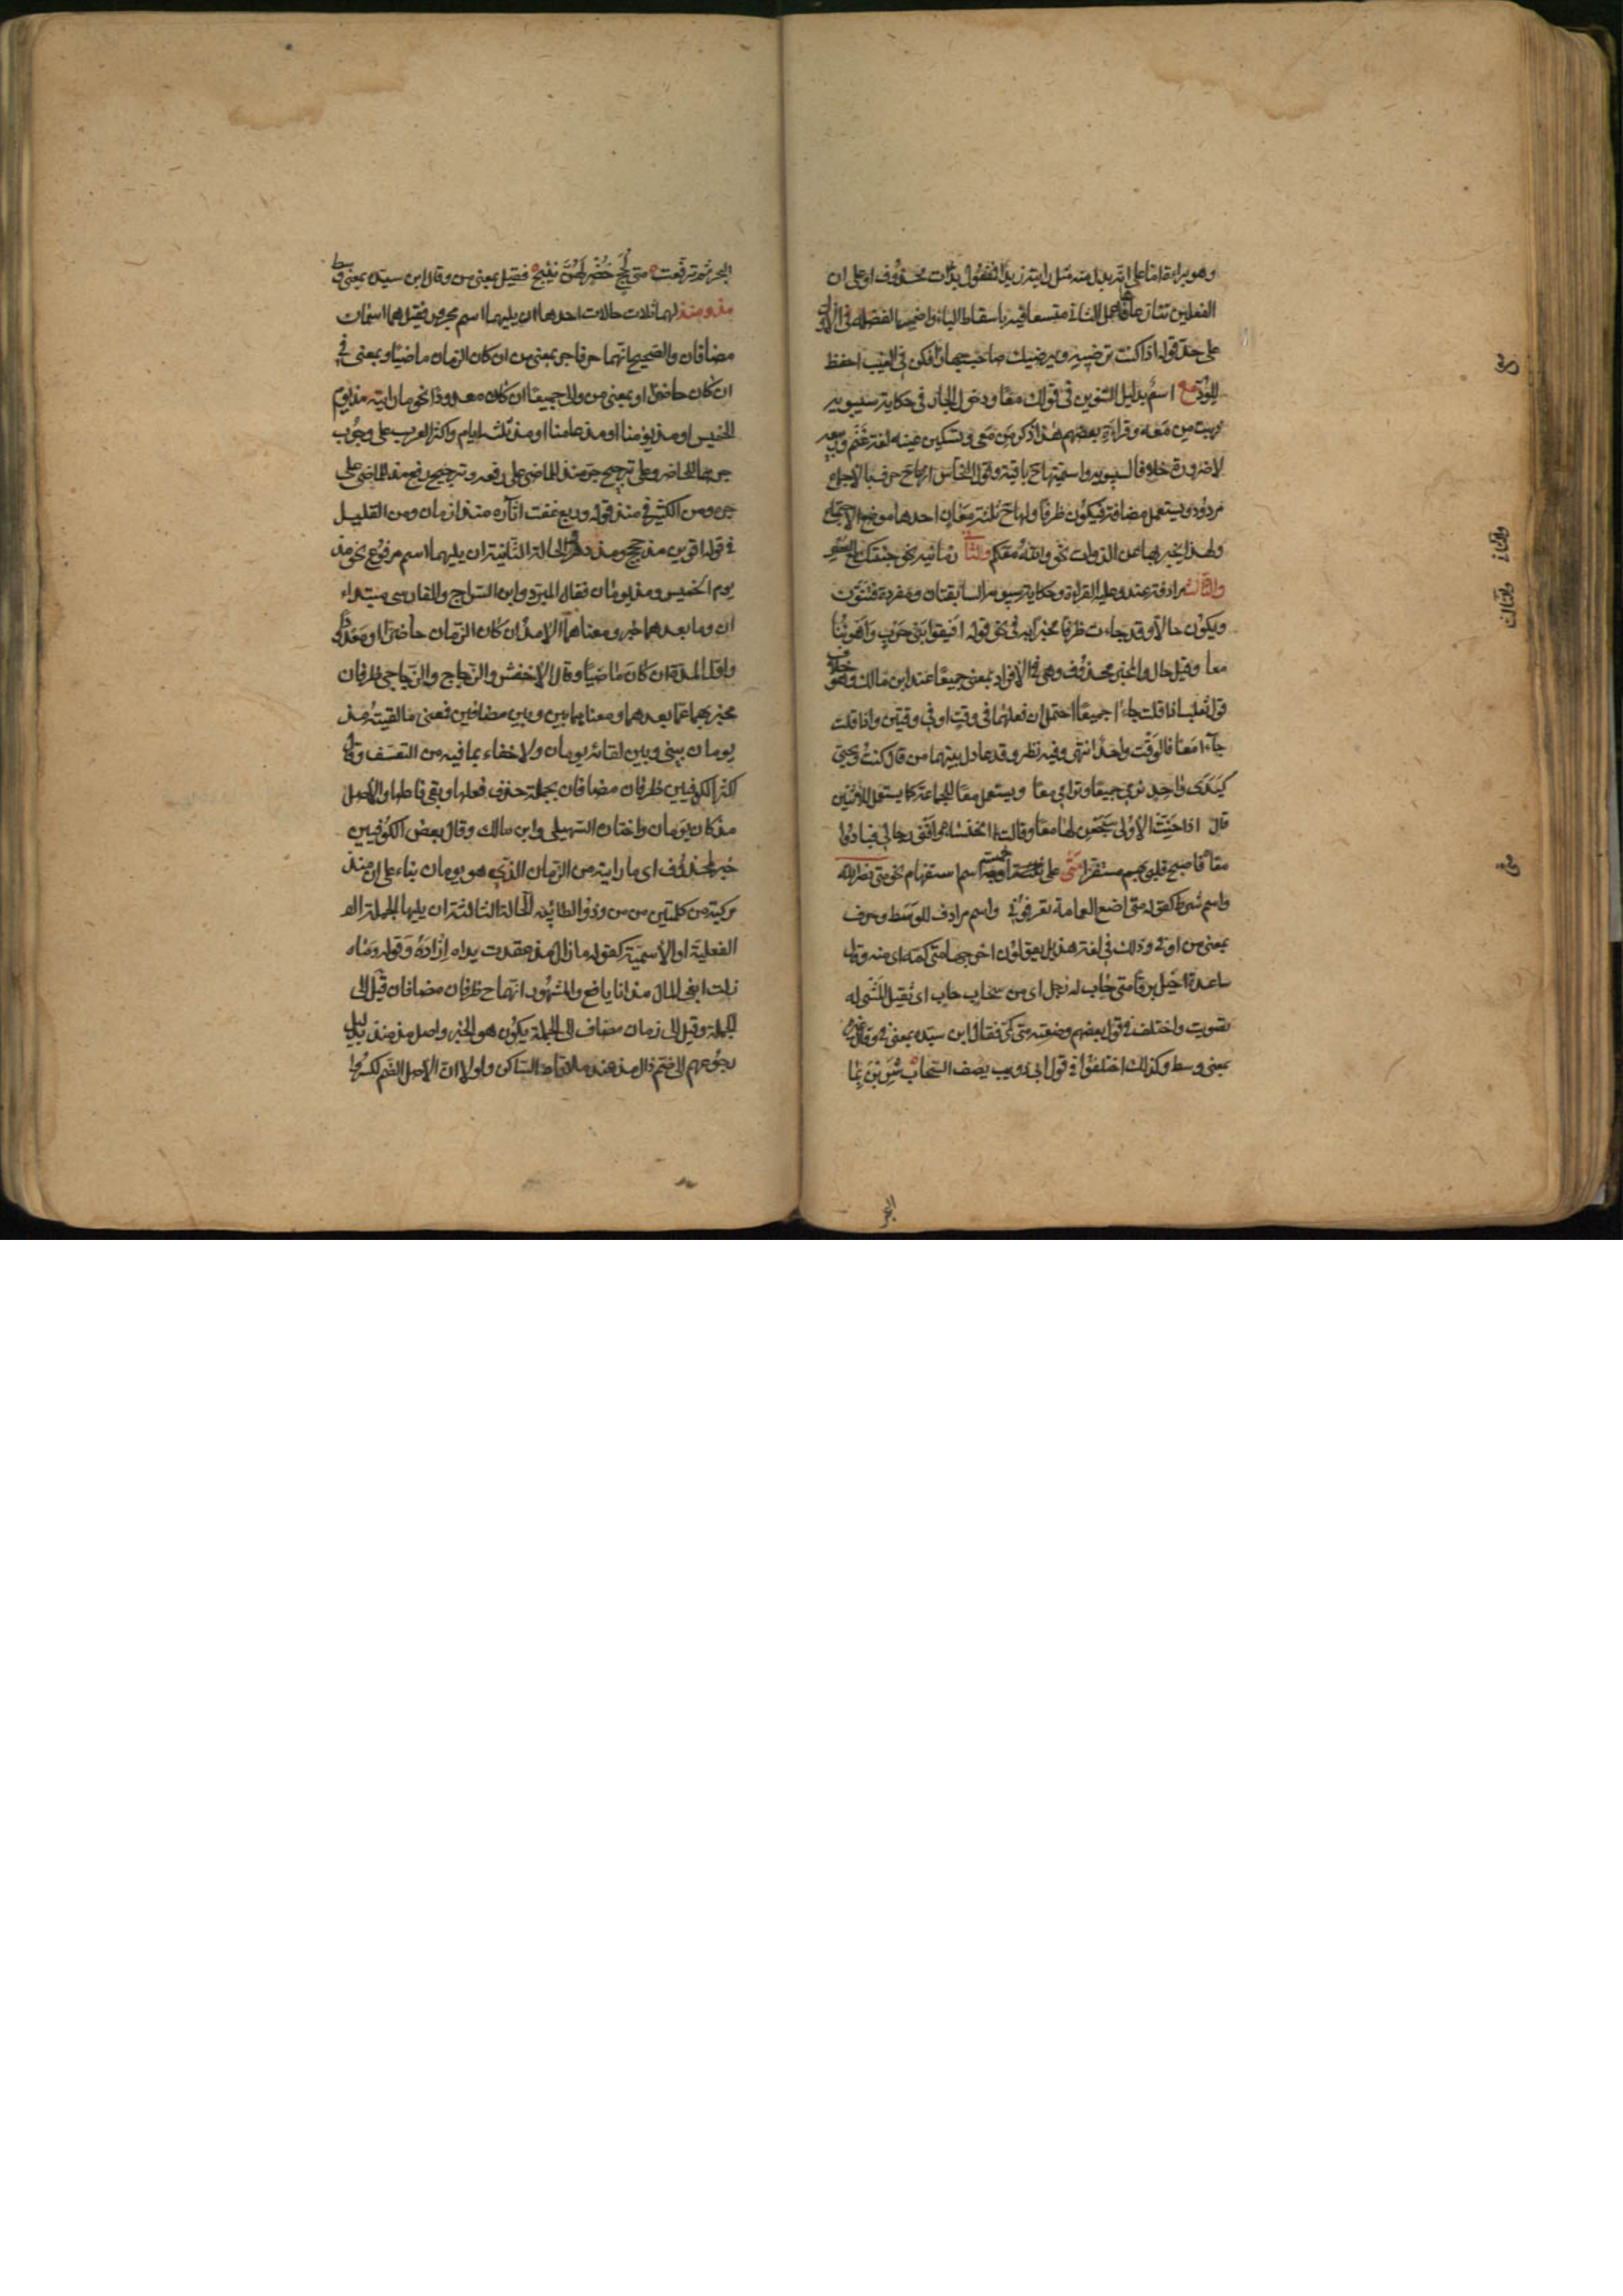 وهو براءة اما على انه بدل منه مثل رايته زيدا او مفعول بذات محذوف او على ان
الفعلين تنازعاها فاعمل الثاني متسعا فيه باسقاط الباء واضمر الفضلة في الاول
على حد قوله اذا كنت ترضيه ويرضيك صاحب جهارا فكن في الغيب احفظ
للود مع اسم بدليل التنوين في قولك معا ودخول الجار في حكاية سيبويه
ذهبت من معه وقراءة بعضهم هذا ذكر من معي وتسكين عينه لغة غنم وربيعة
لا ضرورة خلافا لسيبويه واسميتها ح باقية وقول النحاس انها ح حرف بالاجماع
مردود ويستعمل مضافة فيكون ظرفا ولها ح ثلثة معان احدها موضع الاجتماع
ولهذا يخبر بها عن الذوات نحو والله معكم والثاني زمانه نحو جئتك مع العصر
والثالث مرادفة عند وعليه القراءة وحكاية سيبويه السابقتان ومفردة فتنون
ويكون حالا وقد جاءت ظرفا مخبرا به في نحو قوله افيقوا بني حرب واهواؤنا
معا وقيل حال والخبر محذوف وهي في الافراد بمعنى جميعا عند ابن مالك وهو خلاف
قول ثعلب اذا قلت جاءا جميعا احتمل ان فعلهما في وقت او في وقتين واذا قلت
جاءا معا فالوقت واحد انتهى وفيه نظر وقد عادل بينهما من قال كنت ويحيى
كيدي واحد نرمي جميعا ونرامي معا ويستعمل معا للجماعة كما يستعمل للاثنين
قال اذا حنت الاولى سجعن لها معا وقالت الخنساء وافنى رجالي فبادوا
معا فاصبح قلبي بهم مستفزا متى على خمسة اوجه اسم استفهام نحو متى نصر الله
واسم شرط كقوله متى اضع العمامة تعرفوني واسم مرادف للوسط وحرف
بمعنى من او في وذلك في لغة هذيل يقولون اخرجها متى كمه اى منه وقال
ساعدة اخيل برقا متى حاب له زجل اى من سحاب حاب اى ثقيل المشي له
تصويت واختلف في قول بعضهم وضعته متى كمي فقال ابن سيده بمعنى في وقال غيره
بمعنى وسط وكذلك اختلفوا في قول ابي ذويب يصف السحاب شربن بماء
البحر
مع
والثاني
والثالث
متى
البحر ثم ترفعت متى لجج خضر لهن نئيج فقيل بمعنى من وقال ابن سيده بمعنى وسط
مذ ومنذ لهما ثلاث حالات احدها ان يليهما اسم مجرور فقيل هما اسمان
مضافان والصحيح انهما حرفا جر بمعنى من ان كان الزمان ماضيا وبمعنى في
ان كان حاضرا وبمعنى من والى جميعا ان كان معدودا نحو ما رايته مذ يوم
الخميس او مذ يومنا او مذ عامنا او مذ ثلثة ايام واكثر العرب على وجوب
جرهما للحاضر وعلى ترجيح جر منذ للماضي على رفعه وترجيح رفع مذ للماضي على
جره ومن الكثير في منذ قوله وربع عفت اثاره منذ ازمان ومن القليل
في قوله اقوين مذ حجج ومذ دهر الحالة الثانية ان يليهما اسم مرفوع نحو مذ
يوم الخميس ومنذ يومان فقال المبرد وابن السراج والفارسي مبتداء
ان وما بعدهما خبر ومعناهما الامد ان كان الزمان حاضرا او معدودا
واول المدة ان كان ماضيا وقال الاخفش والزجاج والزجاجي ظرفان
مخبر بهما عما بعدهما ومعناهما بين وبين مضافين فمعنى ما لقيته مذ
يومان بيني وبين لقائه يومان ولا خفاء بما فيه من التعسف وقال
اكثر الكوفيين ظرفان مضافان بجملة حذف فعلها وبقي فاعلها والاصل
مذ كان يومان واختاره السهيلي وابن مالك وقال بعض الكوفيين
خبر لمحذوف اى ما رايته من الزمان الذي هو يومان بناء على ان منذ
مركبة من كلمتين من وذو الطائية الحالة الثالثة ان يليها الجملة
الفعلية او الاسمية كقوله ما زال مذ عقدت يداه ازاره وقوله وما
زلت ابغي المال مذ انا يافع والمشهور انهما ح ظرفان مضافان قيل الى
الجملة وقيل الى زمان مضاف الى الجملة يكون هو الخبر واصل مذ منذ بدليل
رجوعهم الى ضم ذال مذ عند ملاقاة الساكن ولولا ان الاصل الضم لكسروا